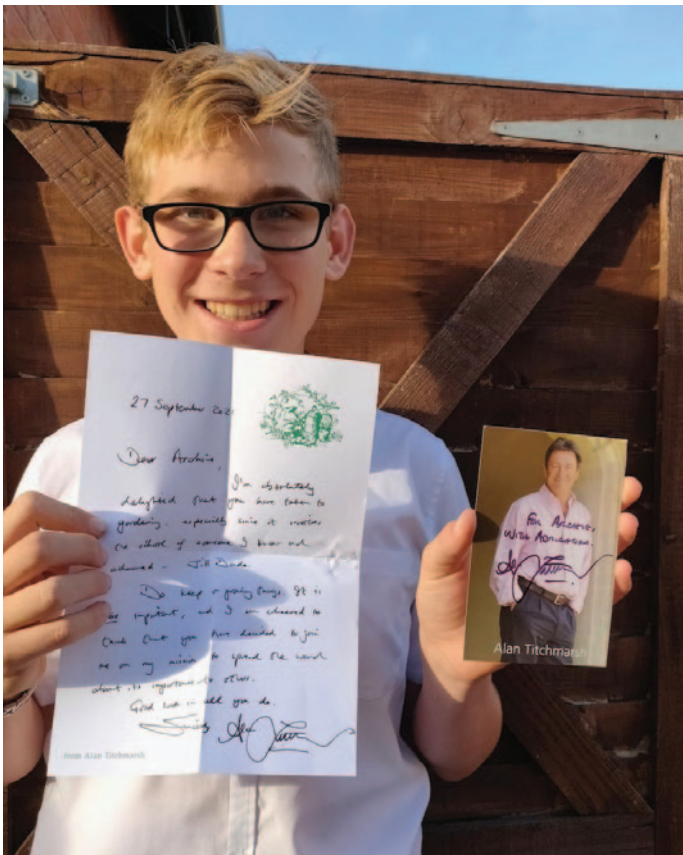 27 September 202
Dear Archie,
I'm absolutely
delighted that you have taken to
gardening, especially since it involves
the school of someone I knew and
admired – Jill Dando.
Do keep on growing things. It is
so important, and I am cheered to
think that you have decided to join
me on my mission to spread the word
about its importance to others.
Good luck in all you do.
Sincerely Alan Titchmarsh
from Alan Titchmarsh
FOR ARCHIE,
WITH ADMIRATION.
Alan Titchmarsh
Alan Titchmarsh